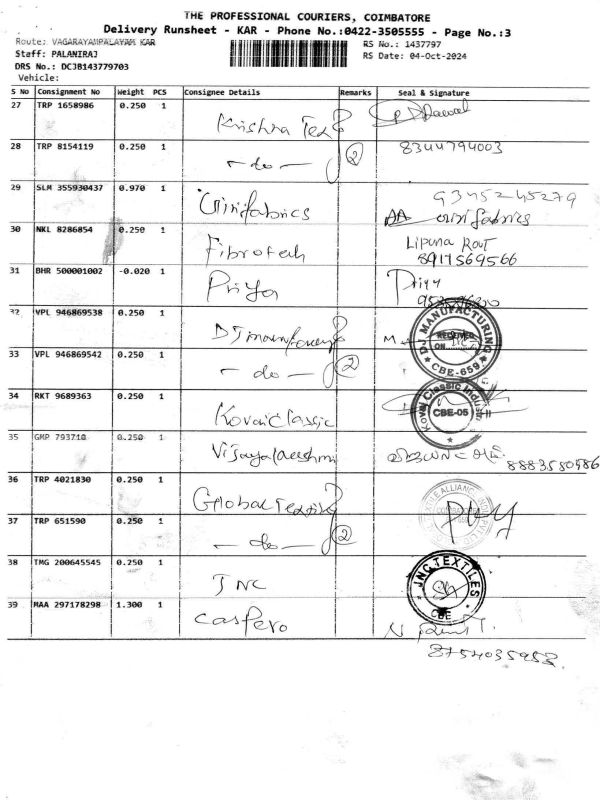 THE PROFESSIONAL COURIERS, COIMBATORE
Delivery Runsheet - KAR - Phone No.:0422-3505555 - Page No.:3
Route: VAGARAYAMPALAYAM KAR
RS No.: 1437797
Staff: PALANIRAJ
RS Date: 04-Oct-2024
DRS No.: DCJB143779703
Vehicle:
S No Consignment No Weight PCS Consignee Details Remarks Seal & Signature
27 TRP 1658986 0.250 1 Krishna Tex
28 TRP 8154119 0.250 1 - do - 2 8344794003
29 SLM 355930437 0.970 1 Girifabrics 9345245279
girifabrics
30 NKL 8286854 0.250 1 Fibrotech Lipuna Rout
8917569566
31 BHR 500001002 -0.020 1 Priya Priya
32 VPL 946869538 0.250 1 DJ DJ MANUFACTURING RECEIVED ON CBE-659
33 VPL 946869542 0.250 1 - do - 2
34 RKT 9689363 0.250 1 Kovai Classic Kovai Classic CBE-05
35 GMP 793710 0.250 1 Vijayalakshmi
8883580586
36 TRP 4021830 0.250 1 Global Textile
37 TRP 651590 0.250 1 - do - 2
38 TMG 200645545 0.250 1 JNC JNC TEXTILES CBE
39 MAA 297178298 1.300 1 Caspero
8754035952